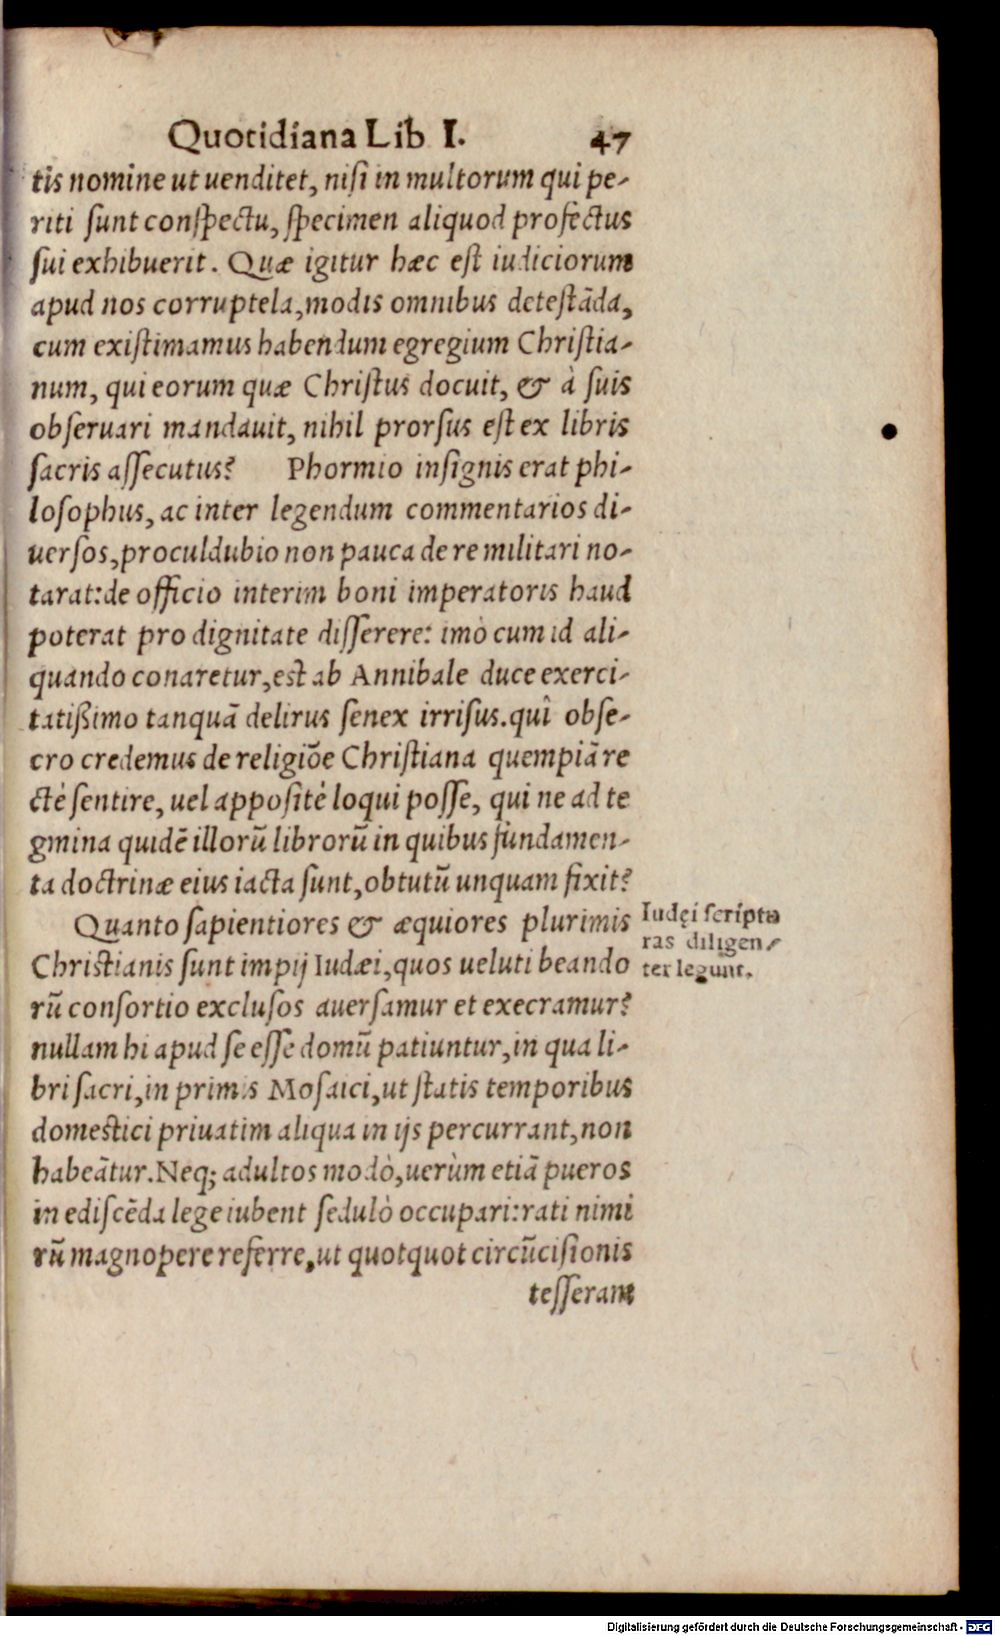 Quotidiana Lib I. 47
tis nomine ut uenditet, niſi in multorum qui pe-
riti ſunt conſpectu, ſpecimen aliquod profectus
ſui exhibuerit. Quæ igitur hæc eſt iudiciorum
apud nos corruptela, modis omnibus deteſtãda,
cum exiſtimamus habendum egregium Chriſtia-
num, qui eorum quæ Chriſtus docuit, & à ſuis
obſeruari mandauit, nihil prorſus eſt ex libris
ſacris aſſecutus? Phormio inſignis erat phi-
loſophus, ac inter legendum commentarios di-
uerſos, proculdubio non pauca de re militari no-
tarat: de officio interim boni imperatoris haud
poterat pro dignitate diſſerere: imò cum id ali-
quando conaretur, est ab Annibale duce exerci-
tatißimo tanquã delirus ſenex irriſus. quî obſe-
cro credemus de religiõe Chriſtiana quempiã re
ctè ſentire, uel appoſitè loqui poſſe, qui ne ad te
gmina quidẽ illorũ librorũ in quibus fundamen-
ta doctrinæ eius iacta ſunt, obtutũ unquam fixit?
Quanto ſapientiores & æquiores plurimis
Chriſtianis ſunt impij Iudæi, quos ueluti beando
rũ conſortio excluſos auerſamur et execramur?
nullam hi apud ſe eſſe domũ patiuntur, in qua li-
bri ſacri, in primis Moſaici, ut ſtatis temporibus
domestici priuatim aliqua in ijs percurrant, non
habeãtur. Neq; adultos modò, uerùm etiã pueros
in ediſcẽda lege iubent ſedulò occupari: rati nimi
rũ magnopere referre, ut quotquot circũciſionis
teſſeram
Iudęi ſcriptu
ras diligen-
ter legunt.
Digitalisierung gefördert durch die Deutsche Forschungsgemeinschaft - DFG